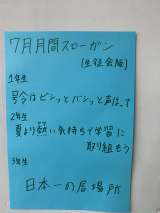 7月月間スローガン
(生徒会版)
1年生
号令はビシッとバシッと声はって
2年生
夏より熱い気持ちで学習に
取り組もう
3年生
日本一の居場所